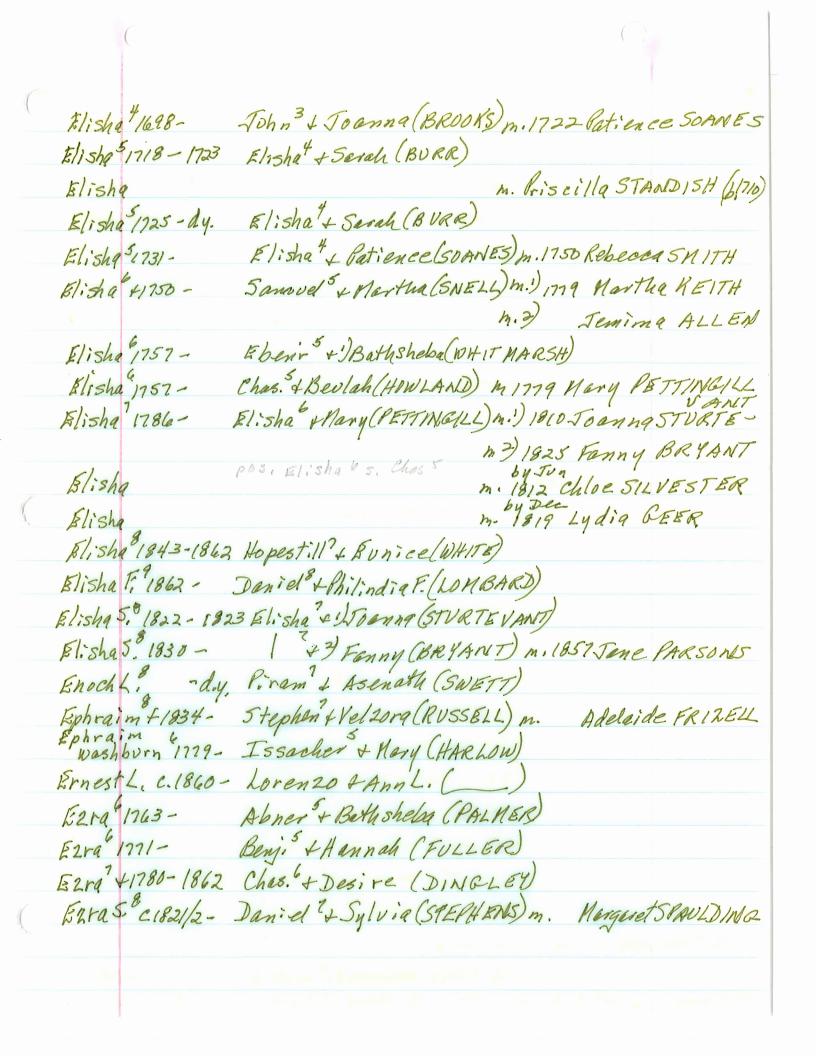 Elisha⁴ 1698- John³ + Joanna (BROOKS) m. 1722 Patience SOANES
Elisha⁵ 1718 - 1723 Elisha⁴ + Sarah (BURR)
Elisha m. Priscilla STANDISH (b1710)
Elisha⁵ 1725 - dy. Elisha⁴ + Sarah (BURR)
Elisha⁵ 1731- Elisha⁴ + Patience (SOANES) m. 1750 Rebecca SMITH
Elisha⁶ +1750- Samuel⁵ + Martha (SNELL) m. 1) 1779 Martha KEITH
m. 2) Jemima ALLEN
Elisha⁶ 1757 - Ebenr⁵ + 1) Bathsheba (WHITMARSH)
Elisha⁶ 1757 - Chas.⁵ + Beulah (HOWLAND) m 1779 Mary PETTINGILL
Elisha⁷ 1786- Elisha⁶ + Mary (PETTINGILL) m. 1) 1810 Joanna STURTE-
VANT
m 2) 1825 Fanny BRYANT
pos. Elisha⁶ s. Chas⁵
by Jun
Elisha m. 1812 Chloe SILVESTER
by Dec
Elisha m. 1819 Lydia GEER
Elisha⁸ 1843-1862 Hopestill⁷ + Eunice (WHITE)
Elisha F.⁹ 1862 - Daniel⁸ + Philindia F. (LOMBARD)
Elisha S.⁸ 1822 - 1823 Elisha⁷ + 1) Joanna (STURTEVANT)
Elisha S.⁸ 1830 - | ⁷ + 2) Fanny (BRYANT) m. 1857 Jane PARSONS
Enoch L.⁸ -d.y. Piram⁷ + Asenath (SWETT)
Ephraim⁸ +1834- Stephen⁷ + Velzora (RUSSELL) m. Adelaide FRIZELL
Ephraim
Washburn⁶ 1779- Issacher⁵ + Mary (HARLOW)
Ernest L. c.1860- Lorenzo + Ann L. (____)
Ezra⁶ 1763- Abner⁵ + Bathsheba (PALMER)
Ezra⁶ 1771- Benj.⁵ + Hannah (FULLER)
Ezra⁷ +1780-1862 Chas.⁶ + Desire (DINGLEY)
Ezra S.⁸ c.1821/2- Daniel⁷ + Sylvia (STEPHENS) m. Margaret SPAULDING